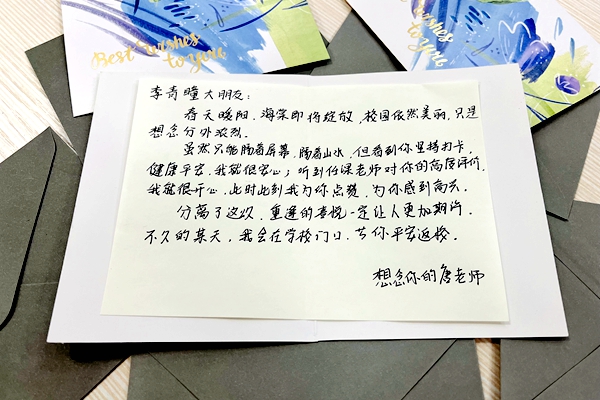 Best Wishes
to you
Wishes
to you
李奇瞳大朋友：
春天暖阳，海棠即将绽放，校园依然美丽，只是
想念分外浓烈。
虽然只能隔着屏幕，隔着山水，但看到你坚持打卡，
健康平安，我就很安心；听到任课老师对你的高度评价，
我就很开心，此时此刻我为你点赞，为你感到高兴。
分离了这久，重逢的喜悦一定让人更加期待。
不久的某天，我会在学校门口，等你平安返校。
想念你的唐老师